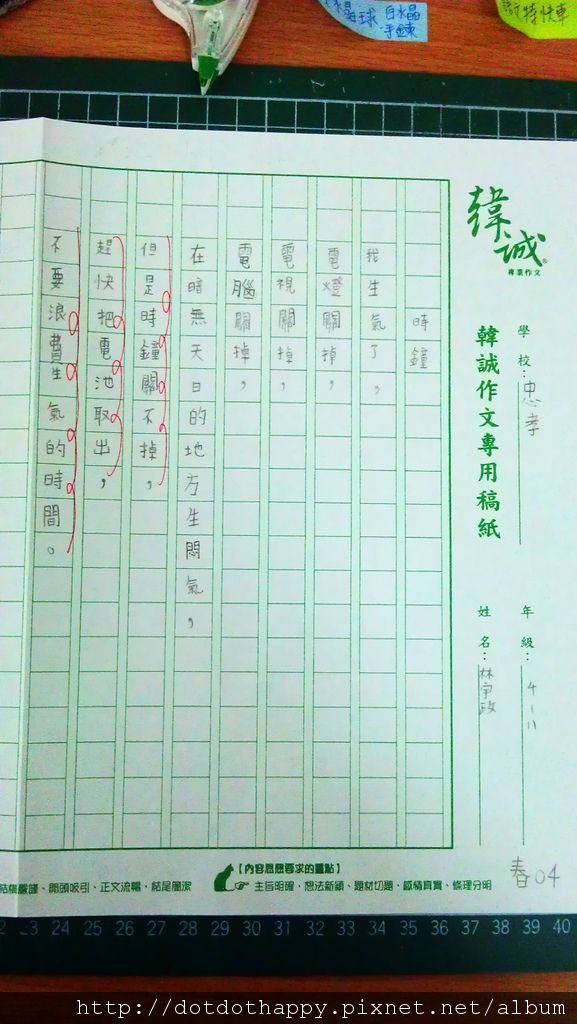 水晶球
白水晶
手鍊
特快車
韓誠
專業作文
韓誠作文專用稿紙
學校：忠孝
年級：4-11
姓名：林宇政
時鐘
我生氣了，
電燈關掉，
電視關掉，
電腦關掉，
在暗無天日的地方生悶氣，
但是時鐘關不掉，
趕快把電池取出，
不要浪費生氣的時間。
【內容思想要求的重點】
主旨明確、想法新穎、題材切題、感情真實、條理分明
結構嚴謹、開頭吸引、正文流暢、結尾簡潔
春04
22 23 24 25 26 27 28 29 30 31 32 33 34 35 36 37 38 39 40
http://dotdothappy.pixnet.net/album